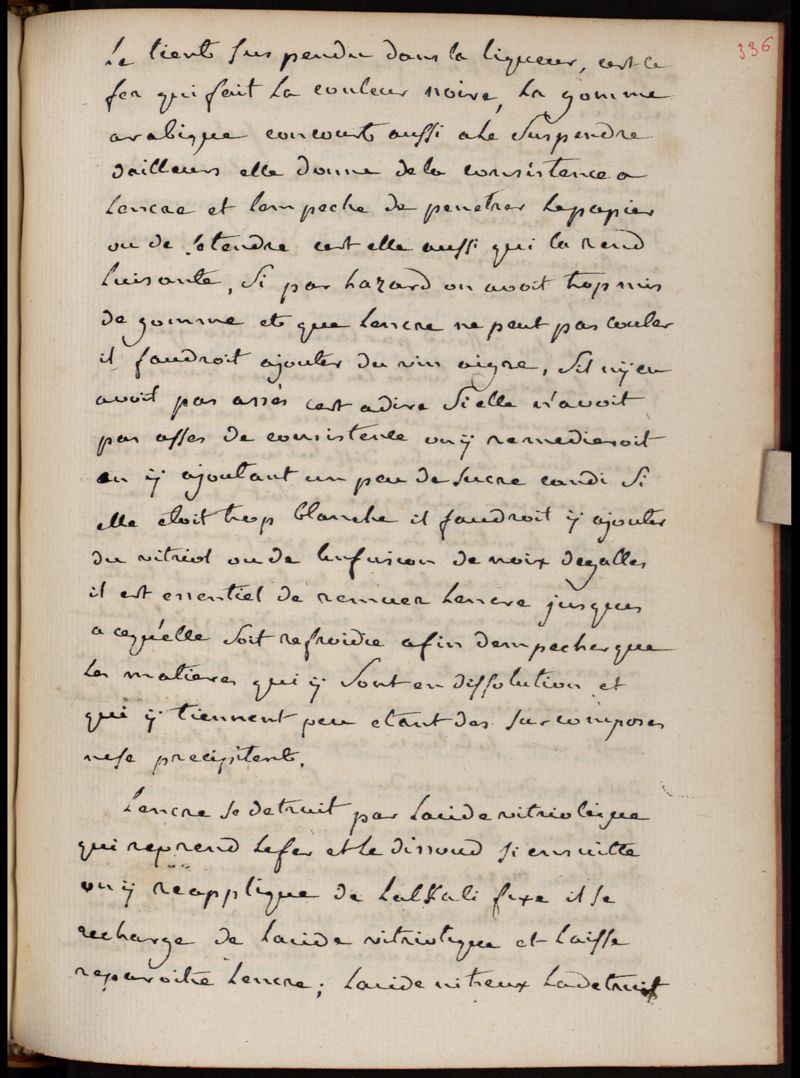 336
Le tient suspendu dans la liqueur, cest le
fer qui fait la couleur noire, la gomme
arabique concourt aussi a le suspendre
dailleurs elle donne de la consistence a
Lencre et lempeche de penetrer lepapier
ou de setendre cest elle aussi qui la rend
luisante, Si par hazard on avoit trop mis
de gomme et que lencre ne peut pas couler
il faudroit ajouter du vin aigre, Sil ny en
avoit pas assés cest adire Si elle n'avoit
pas asses de consistence on ÿ remedieroit
en ÿ ajoutant un peu de Sucre candi Si
elle étoit trop blanche il faudroit ÿ ajouter
du vitriol ou de linfusion de noix degalles
il est essentiel de remuer Lencre jusques
a cequ'elle soit refroidie afin dempecher que
les matieres qui ÿ Sont en dissolution et
qui ÿ tiennent peu etant des surcomposes
nese precipitent.
Lencre se detruit par lacide vitriolique
qui reprend lefer et le dissoud si ensuitte
on ÿ reapplique de lalKali fixe il se
recharge de lacide vitriolique et laisse
reparoitre lencre; lacide nitreux ladetruit